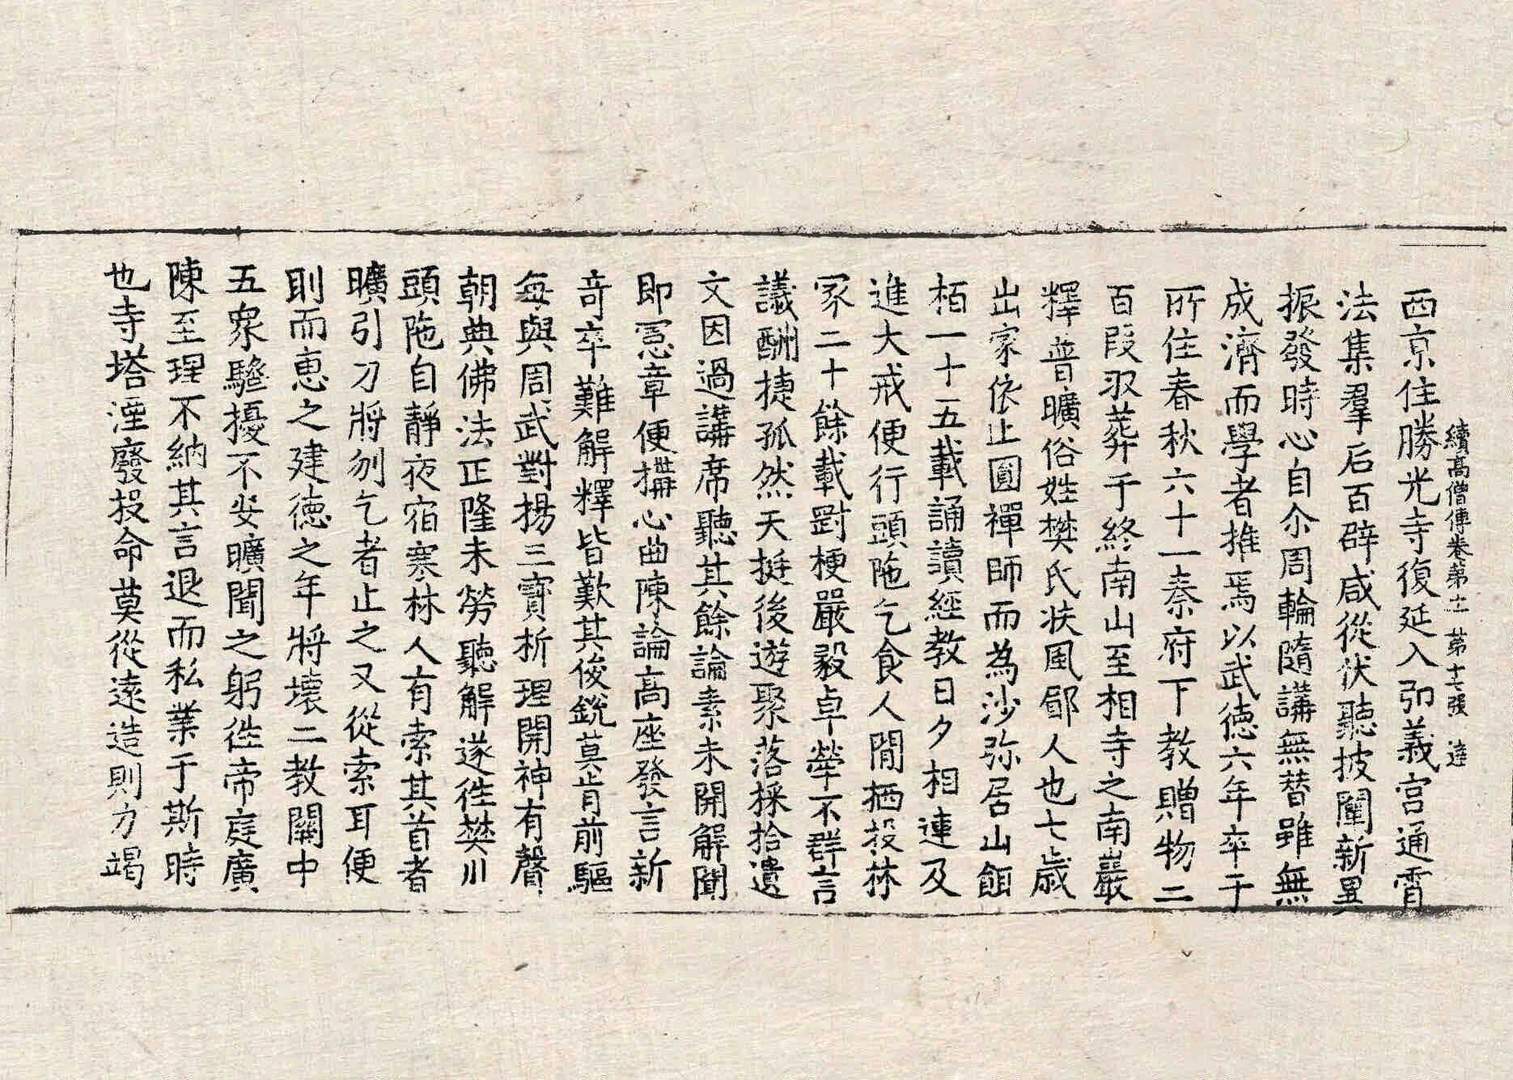 續高僧傳卷第十一 第十七張 達
西京住勝光寺復延入弘義宮通宵
法集羣后百辟咸從伏聽披闡新異
振發時心自尒周輪隨講無替雖無
成濟而學者推焉以武德六年卒于
所住春秋六十一秦府下教贈物二
百段収葬于終南山至相寺之南巖
釋普曠俗姓樊氏扶風郿人也七歲
出家依止圓禪師而為沙弥居山餌
栢一十五載誦讀經教日夕相連及
進大戒便行頭陁乞食人間栖投林
冢二十餘載剛梗嚴毅卓犖不群言
議酬捷孤然天挺後遊聚落採拾遺
文因過講席聽其餘論素未開解聞
即憲章便搆心曲陳論高座發言新
奇卒難解釋皆歎其俊銳莫肯前驅
每與周武對揚三寶析理開神有聲
朝典佛法正隆未勞聽解遂徃樊川
頭陁自靜夜宿寒林人有索其首者
曠引刀將刎乞者止之又從索耳便
刵而恵之建德之年將壞二教關中
五衆騷擾不安曠聞之躬徃帝庭廣
陳至理不納其言退而私業于斯時
也寺塔湮廢投命莫從遠造則力竭